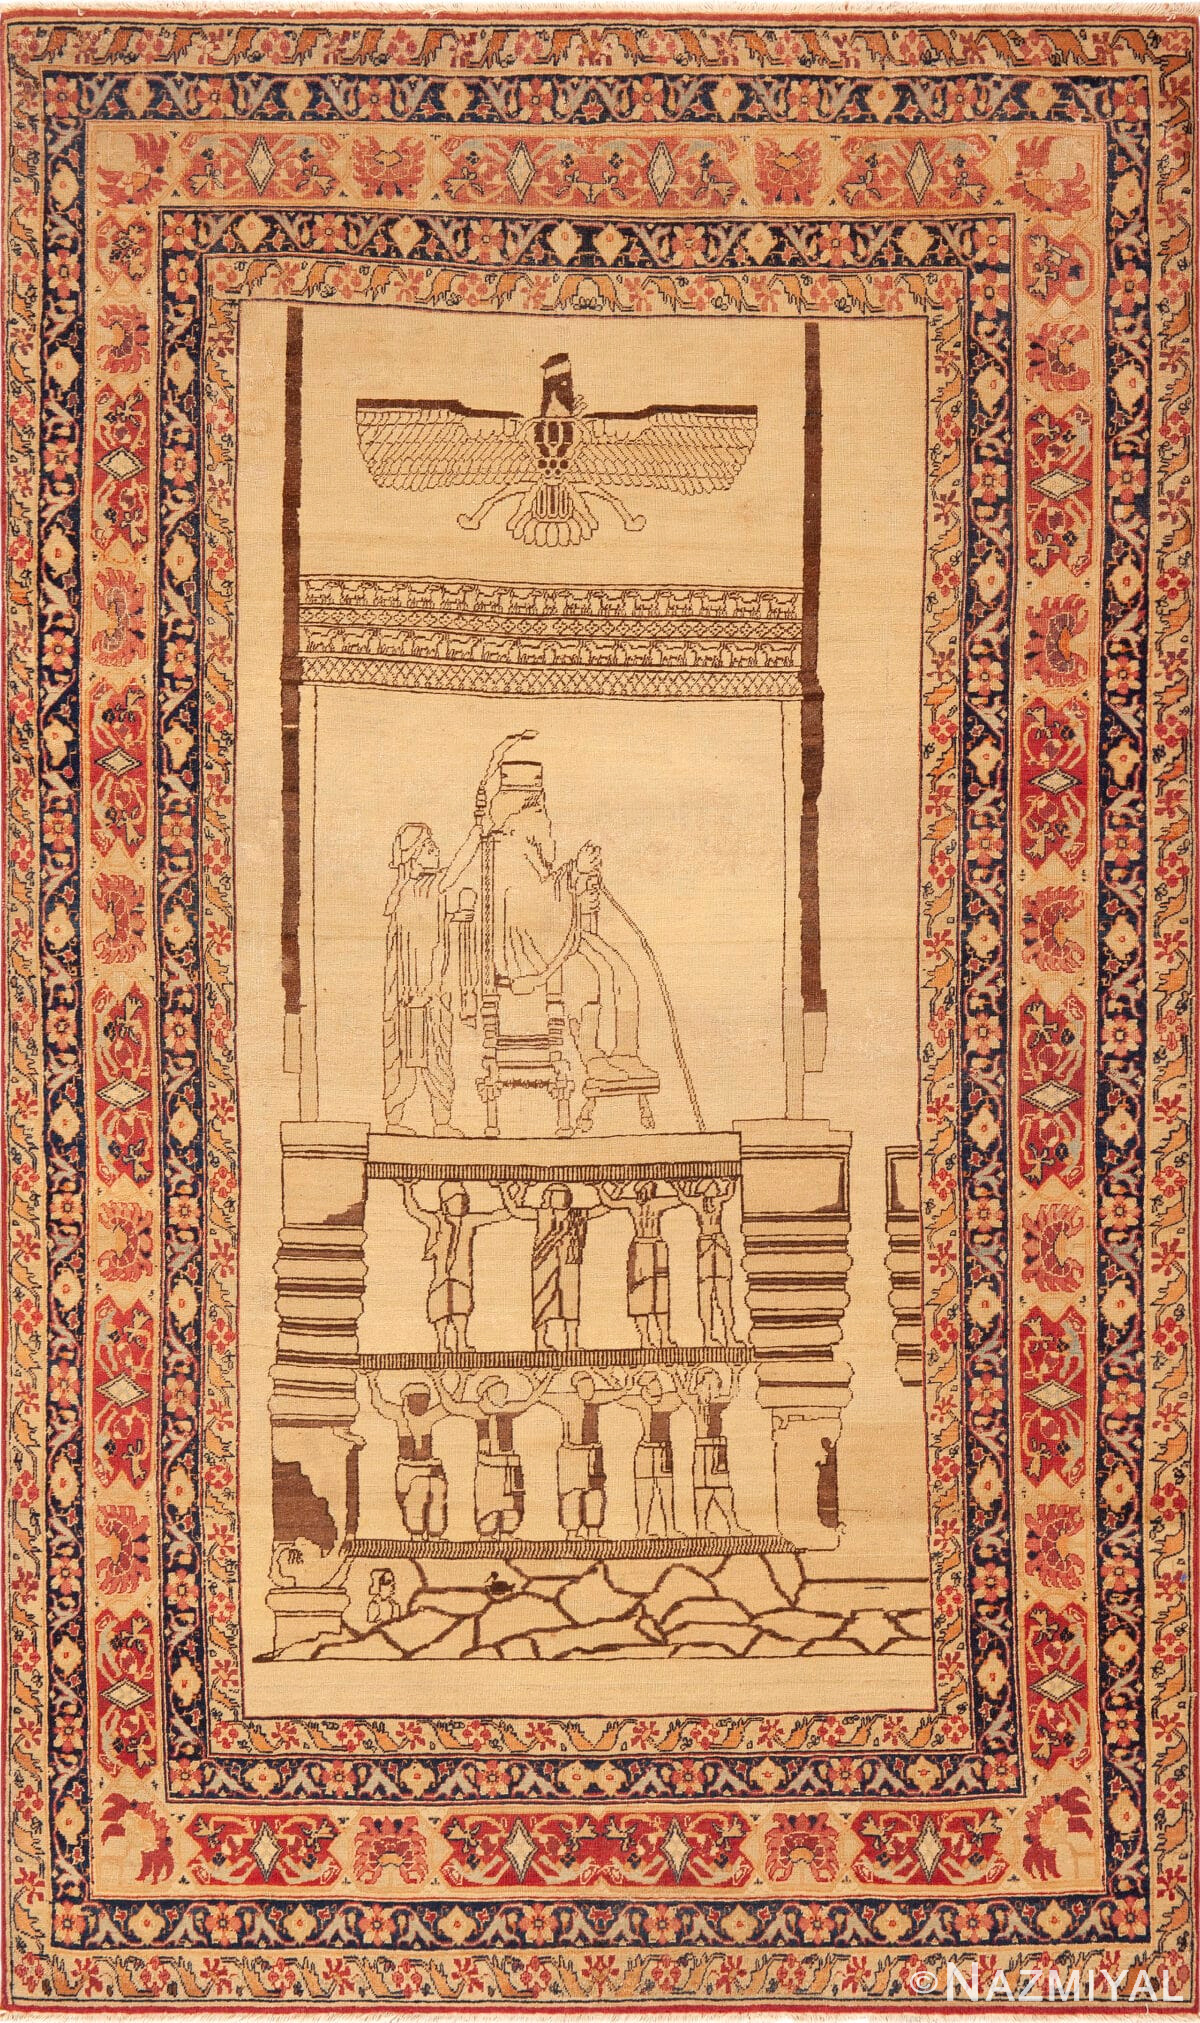 © NAZMIYAL